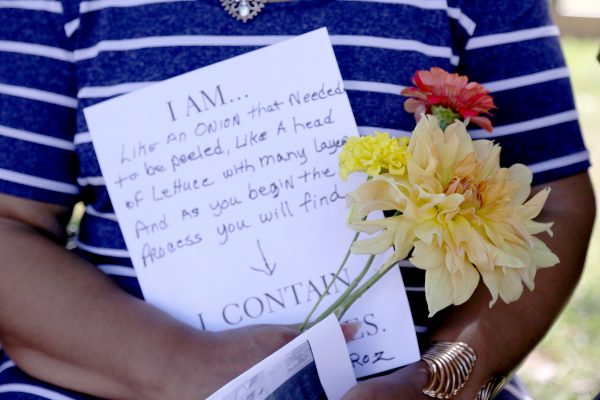 I AM...
Like AN ONION that Needed
to be peeled, Like A head
of Lettuce with many layer
And as you begin the
Process you will find
↓
I CONTAIN
ES.
Roz